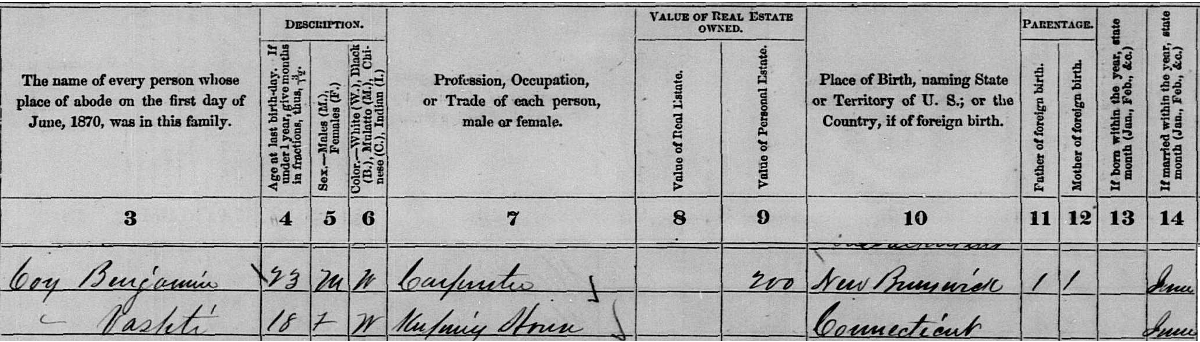 DESCRIPTION.
VALUE OF REAL ESTATE
OWNED.
PARENTAGE.
The name of every person whose
place of abode on the first day of
June, 1870, was in this family.
Age at last birth-day. If
under 1 year, give months
in fractions, thus, 3/12.
Sex.—Males (M.),
Females (F.)
Color.—White (W.), Black
(B.), Mulatto (M.), Chi-
nese (C.), Indian (I.)
Profession, Occupation,
or Trade of each person,
male or female.
Value of Real Estate.
Value of Personal Estate.
Place of Birth, naming State
or Territory of U. S.; or the
Country, if of foreign birth.
Father of foreign birth.
Mother of foreign birth.
If born within the year, state
month (Jan., Feb., &c.)
If married within the year, state
month (Jan., Feb., &c.)
3 4 5 6 7 8 9 10 11 12 13 14
Coy Benjamin 23 M W Carpenter 200 New Brunswick 1 1 June
" Vashti 18 F W Keeping House Connecticut June